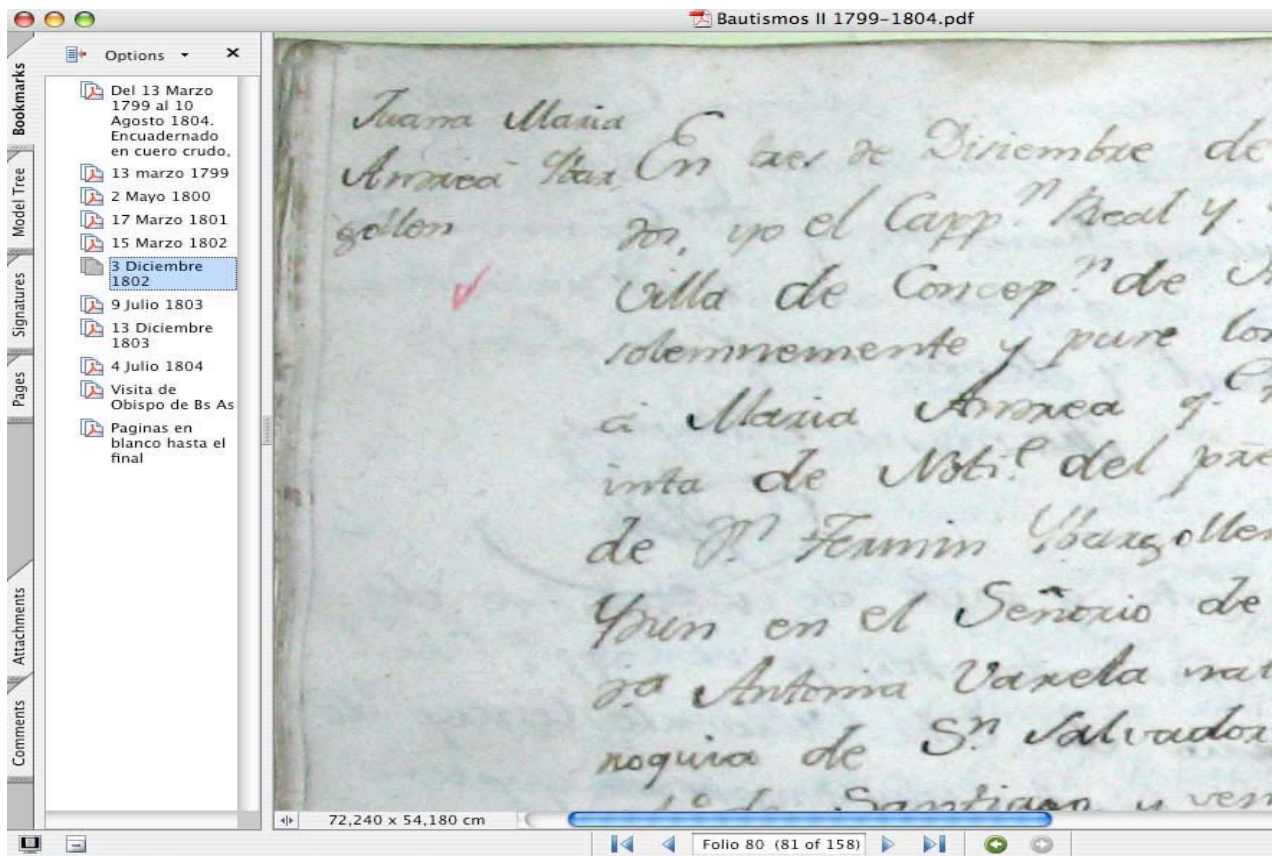 Bautismos II 1799-1804.pdf
Options
Bookmarks
Model Tree
Signatures
Pages
Attachments
Comments
Del 13 Marzo
1799 al 10
Agosto 1804.
Encuadernado
en cuero crudo,
13 marzo 1799
2 Mayo 1800
17 Marzo 1801
15 Marzo 1802
3 Diciembre
1802
9 Julio 1803
13 Diciembre
1803
4 Julio 1804
Visita de
Obispo de Bs As
Paginas en
blanco hasta el
final
Juana Maria
Andrea Ybar
gollen
En tres de Diciembre de
dos, yo el Capp.n Real y
Villa de Concep.n de
solemnemente y puse los
á Maria Andrea q.e
inta de Nov.e del pre
de D.n Fermin Ybargollen
Yrun en el Señorio de
d.a Antonia Varela nat
roquia de S.n Salvador
de Santiago y ven
72,240 x 54,180 cm
Folio 80 (81 of 158)